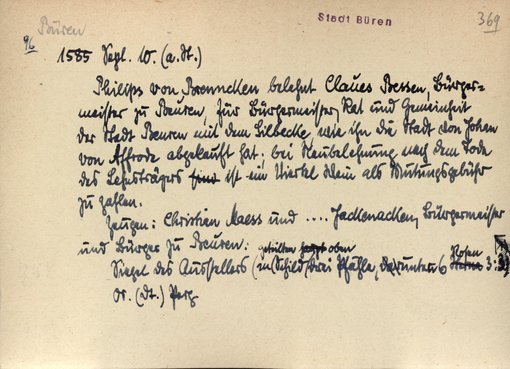 Büren
Stadt Büren
369
96
1585 Sept. 10. (a. St.)
Philips von Brenncken belehnt Claues Bessen, Bürger-
meister zu Beuren, für Bürgermeister, Rat und Gemeinheit
der Stadt Beuren mit dem Lilbecke, wie ihn die Stadt von Johan
von Affrode abgekauft hat; bei Neubelehnung nach dem Tode
des Lehnsträgers ist ein Viertel Wein als Mutungsgebühr
zu zahlen.
Zeugen: Christian Maess und .... Jacknacken, Bürgermeister
und Bürger zu Beuren:
geteilten oben
Siegel des Ausstellers (im Schild drei Pfähle, darunter 6 Rosen 3:
Or. (dt.) Perg